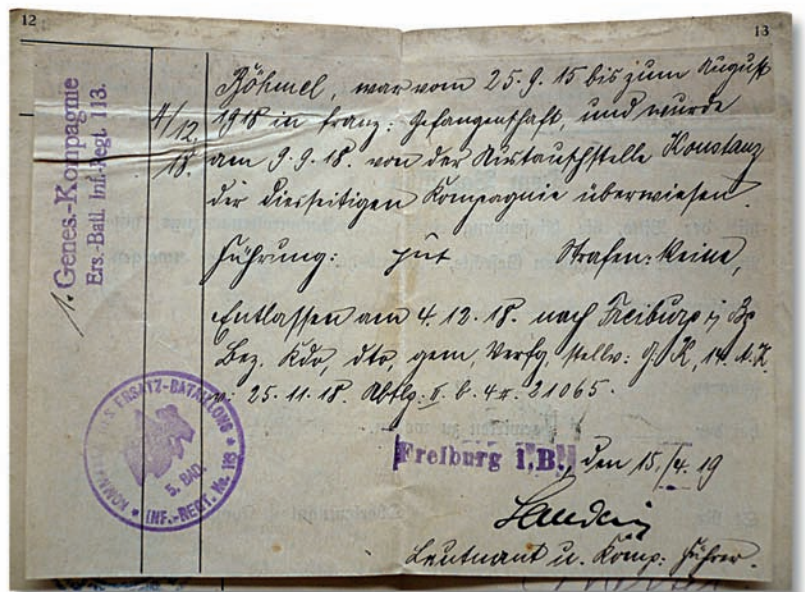 12
13
1. Genes.-Kompagnie
Ers.-Batl. Inf.-Regt. 113.
4/12.
18.
Böhmel, war vom 25.9.15 bis zum August
1918 in franz: Gefangenschaft, und wurde
am 9.9.18. von der Austauschstelle Konstanz
der diesseitigen Kompagnie überwiesen.
Führung: gut Strafen: Keine,
Entlassen am 4.12.18. nach Freiburg i/Bg
Bez. Kdo, dto, gem, Verfg, stellv: G.K, 14. A.K.
v: 25.11.18. Abtlg: II. b. 4 21065.
Freiburg i.B., den 15./4.19
Leutnant u. Komp: Führer.
KOMMANDO DES ERSATZ-BATAILLONS
5. BAD.
INF.-REGT. No. 113